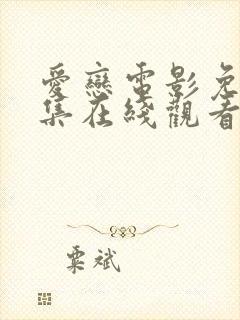 愛戀電影免
集在綫觀看
粟斌